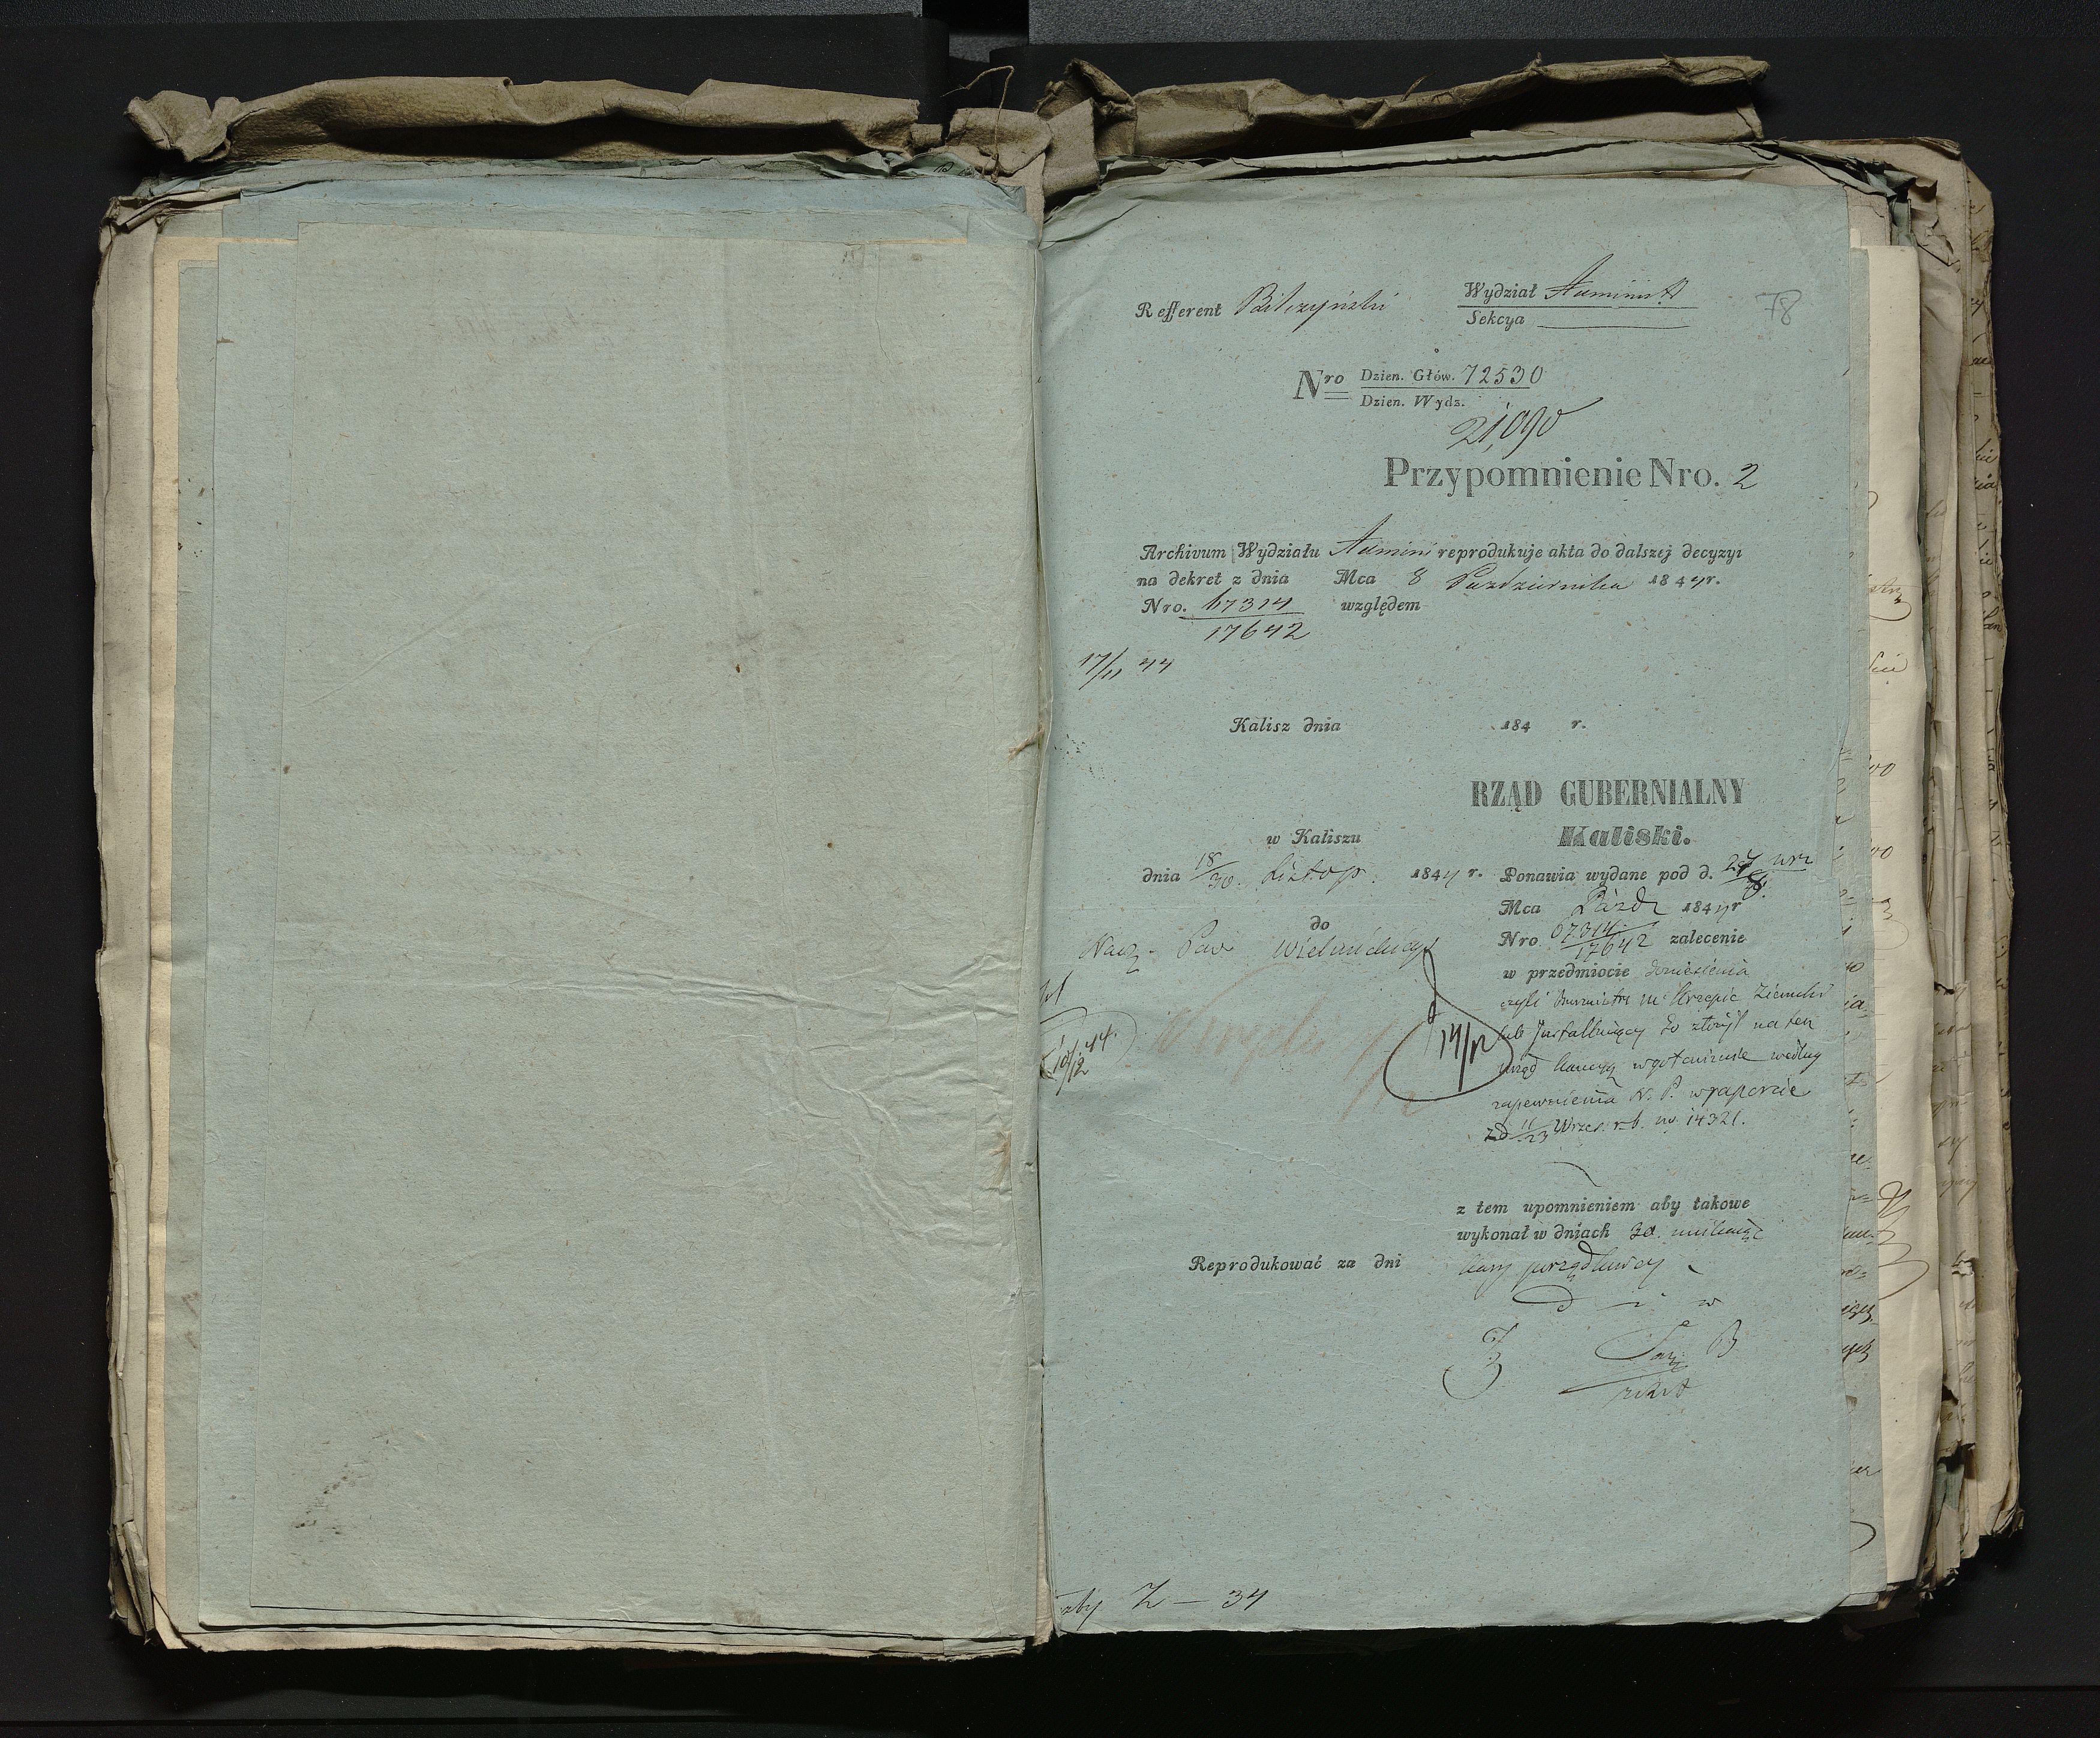 Refferent Bilczyński
Wydział Administr
Sekcya
78
Nro Dzien. Głów. 72530
Dzien. Wydz.
21,090
Przypomnienie Nro. 2
Archivum Wydziału Admini reprodukuje akta do dalszej decyzyi
na dekret z dnia Mca 8 Października 1844 r.
Nro. 67314 względem
17642
17/11 44
Kalisz dnia 184 r.
RZĄD GUBERNIALNY
Kaliski.
w Kaliszu
dnia 18/30 Listop. 1844 r.
do
Nacz. Pow Wieluńskiego
10/12 44.
14/12
Ponawia wydane pod d. 27 wrz
Mca Paźdz 1844 r
Nro 67314 zalecenie
17642
w przedmiocie doniesienia
czyli Burmistrz m. Krzepic Ziemski
urząd kaucyą w gotowiznie według
zapewnienia N. P. w raporcie
z d 11/23 Wrześ. r. b. no 14321.
z tem upomnieniem aby takowe
wykonał w dniach 30. uniknąć
kary porządkowej
Reprodukować za dni
Z — 34